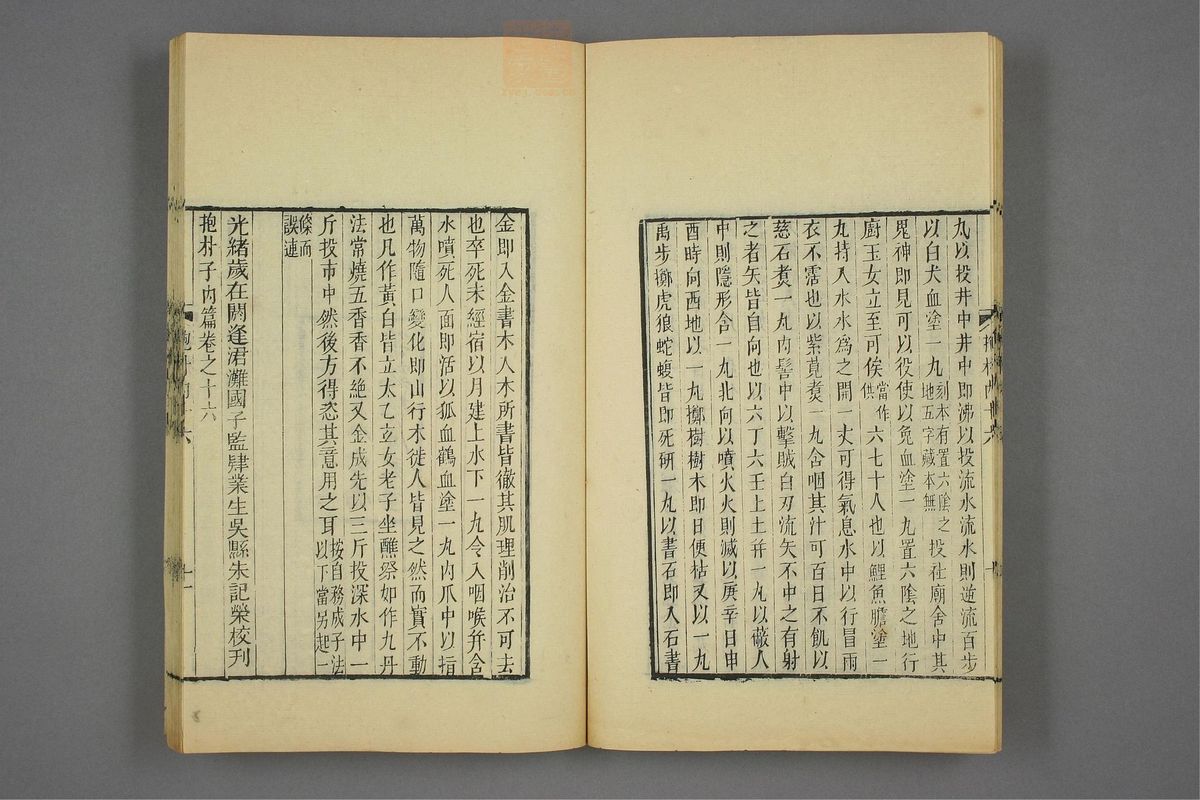 丸以投井中井中即沸以投流水流水則逆流百步
以白犬血塗一丸刻本有置六陰之地五字藏本無投社廟舍中其
鬼神即見可以役使以兔血塗一丸置六陰之地行
廚玉女立至可俟當作供六七十人也以鯉魚膽塗一
丸持入水水爲之開一丈可得氣息水中以行冒雨
衣不霑也以紫莧煮一丸含咽其汁可百日不飢以
慈石煮一丸內髻中以擊賊白刃流矢不中之有射
之者矢皆自向也以六丁六壬上土并一丸以蔽人
中則隱形含一丸北向以噴火火則滅以庚辛日申
酉時向西地以一丸擲樹樹木即日便枯又以一丸
禹步擲虎狼蛇蝮皆即死研一丸以書石即入石書
金即入金書木入木所書皆徹其肌理削治不可去
也卒死未經宿以月建上水下一丸令入咽喉并含
水噴死人面即活以狐血鶴血塗一丸內爪中以指
萬物隨口變化即山行木徙人皆見之然而實不動
也凡作黃白皆立太乙立女老子坐醮祭如作九丹
法常燒五香香不絕又金成先以三斤投深水中一
斤投市中然後方得恣其意用之耳按自務成子法以下當另起一
條而誤連
光緒歲在閼逢涒灘國子監肄業生吳縣朱記榮校刊
抱朴子內篇卷之十六